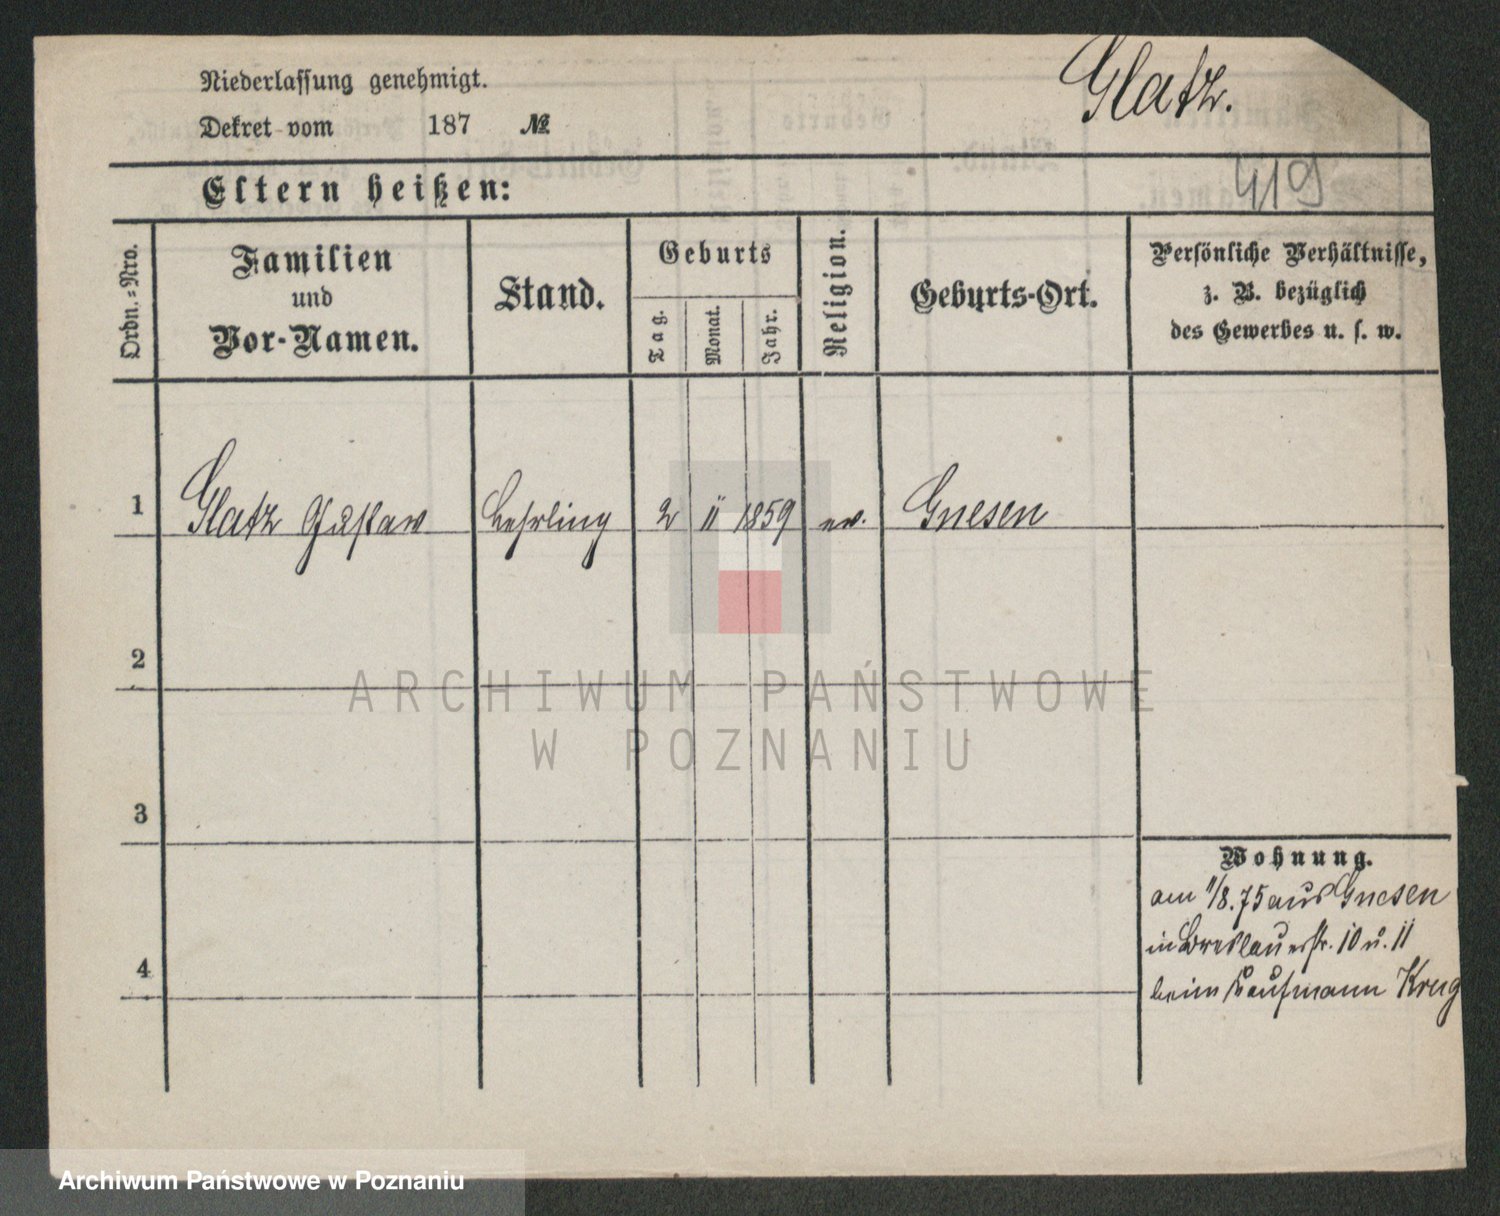 Niederlassung genehmigt.
Glatz.
Dekret vom 187 №
419
Eltern heißen:
Ordn.=Nro.
Familien
und
Vor-Namen.
Stand.
Geburts
Tag.
Monat.
Jahr.
Religion.
Geburts-Ort.
Persönliche Verhältnisse,
z. B. bezüglich
des Gewerbes u. s. w.
1 Glatz Gustaw Lehrling 2 11 1859 ev. Gnesen
2
3
4
Wohnung.
am 1/8. 75 aus Gnesen
in Breslauerstr. 10 u. 11
beim Kaufmann Krug
ARCHIWUM PAŃSTWOWE
W POZNANIU
Archiwum Państwowe w Poznaniu